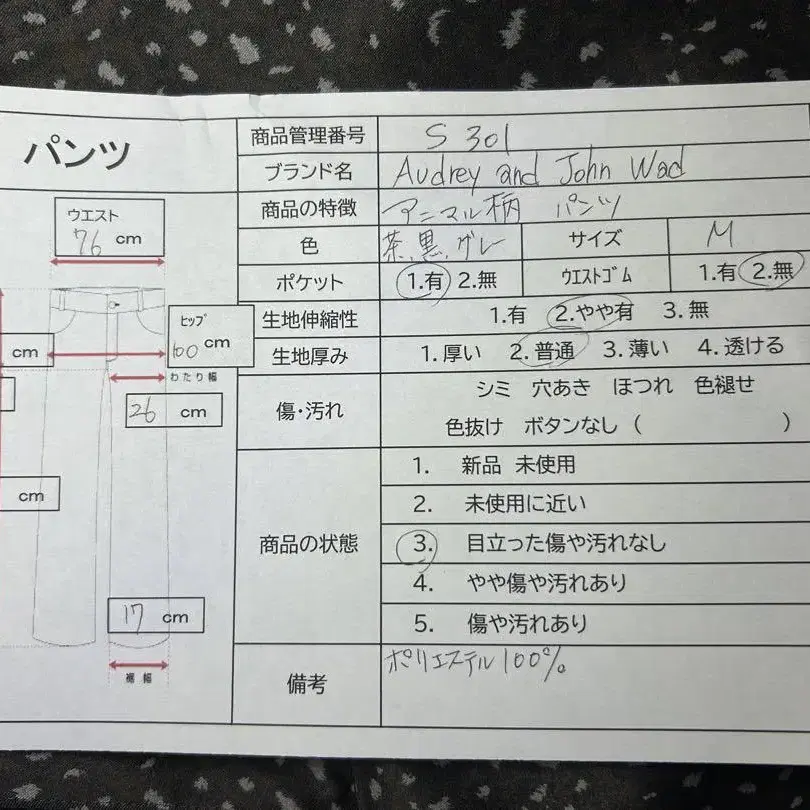 パンツ
ウエスト
76 cm
ヒップ
100 cm
cm
わたり幅
26 cm
cm
17 cm
裾幅
商品管理番号 S 301
ブランド名 Audrey and John Wad
商品の特徴 アニマル柄 パンツ
色 茶、黒、グレー サイズ M
ポケット 1.有 2.無 ウエストゴム 1.有 2.無
生地伸縮性 1.有 2.やや有 3.無
生地厚み 1.厚い 2.普通 3.薄い 4.透ける
傷・汚れ シミ 穴あき ほつれ 色褪せ
色抜け ボタンなし ( )
商品の状態
1. 新品 未使用
2. 未使用に近い
3. 目立った傷や汚れなし
4. やや傷や汚れあり
5. 傷や汚れあり
備考 ポリエステル100%